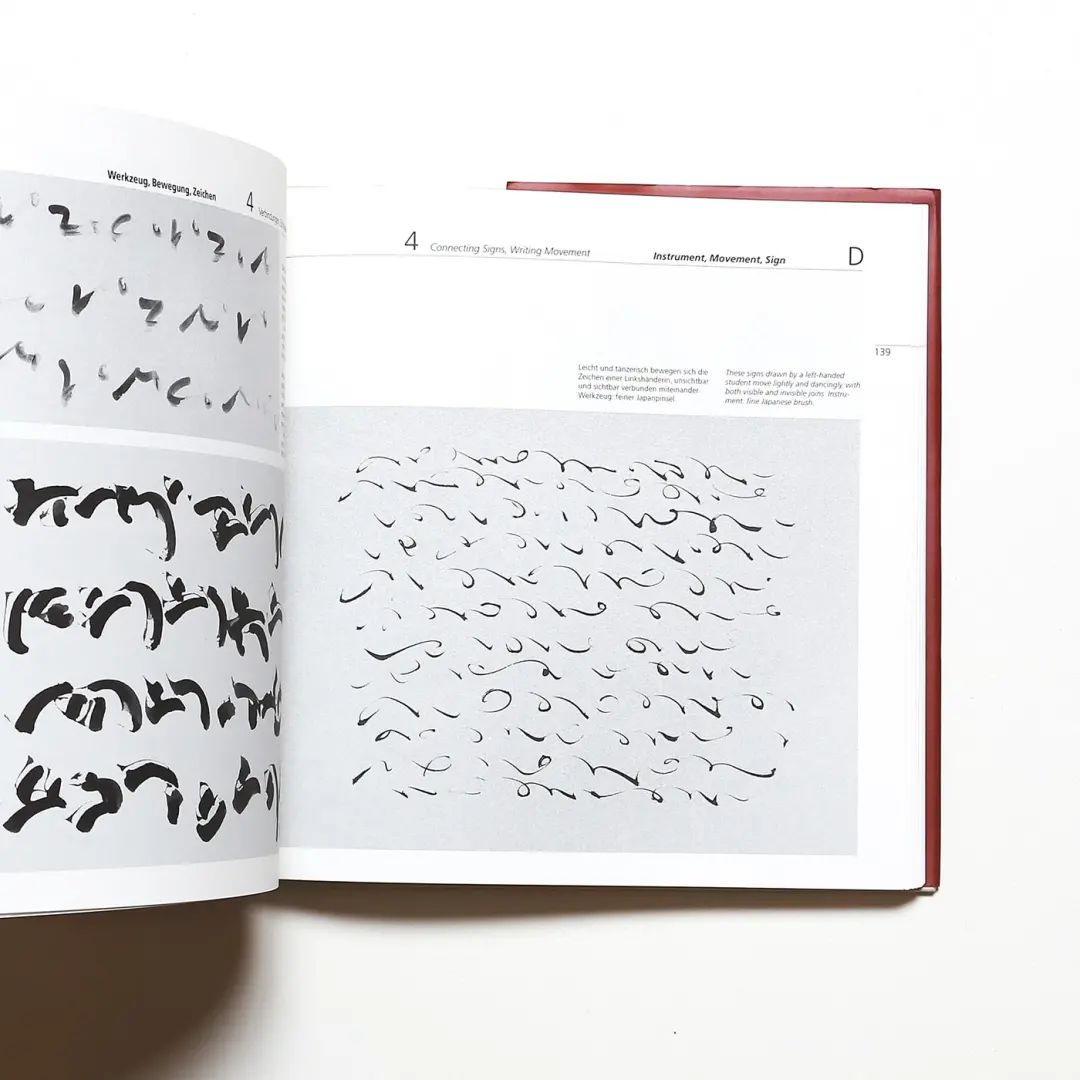 Werkzeug, Bewegung, Zeichen
4
4 Connecting Signs, Writing Movement
Instrument, Movement, Sign
D
139
Leicht und tänzerisch bewegen sich die
Zeichen einer Linkshänderin, unsichtbar
und sichtbar verbunden miteinander.
Werkzeug: feiner Japanpinsel.
These signs drawn by a left-handed
student move lightly and dancingly, with
both visible and invisible joins. Instru-
ment: fine Japanese brush.